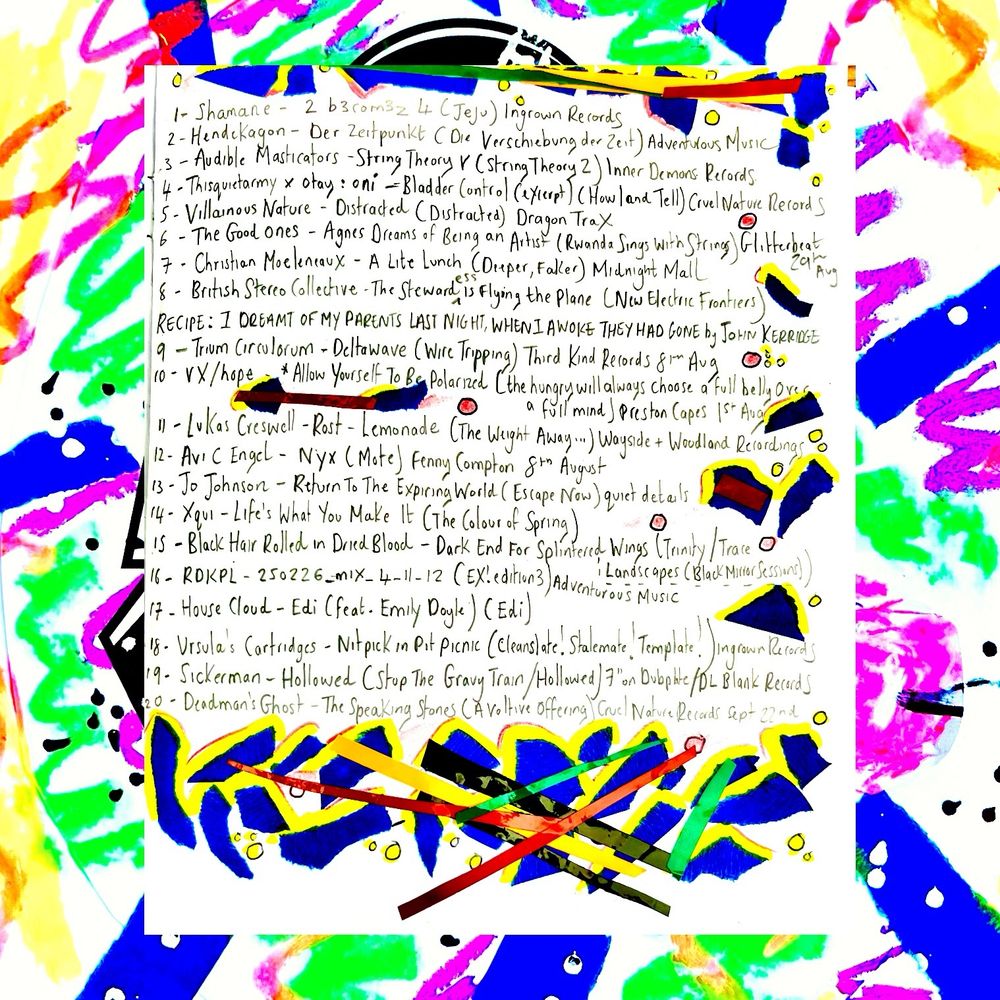 1- Shamane - 2 b3com3z 4 (Jeju) Ingrown Records
2- Hendekagon - Der Zeitpunkt (Die Verschiebung der Zeit) Adventurous Music
3 - Audible Masticators - String Theory V (String Theory 2) Inner Demons Records
4 - Thisquietarmy x otay:oni - Bladder Control (excerpt) (Howl and Tell) Cruel Nature Records
5 - Villainous Nature - Distracted (Distracted) Dragon TraX
6 - The Good Ones - Agnes Dreams of Being an Artist (Rwanda Sings With Strings) Glitterbeat
29th Aug
7 - Christian Moeleneaux - A Lite Lunch (Deeper, Faker) Midnight Mall
8 - British Stereo Collective - The Stewardess is Flying the Plane (New Electric Frontiers)
RECIPE: I DREAMT OF MY PARENTS LAST NIGHT, WHEN I AWOKE THEY HAD GONE by JOHN KERRIDGE
9 - Trium Circulorum - Deltawave (Wire Tripping) Third Kind Records 8th Aug
10 - VX/hope - *Allow Yourself To Be Polarized (the hungry will always choose a full belly over
a full mind) Preston Capes 1st Aug
11 - Lukas Creswell-Rost - Lemonade (The Weight Away...) Wayside + Woodland Recordings
12 - Avi C Engel - Nyx (Mote) Fenny Compton 8th August
13 - Jo Johnson - Return To The Expiring World (Escape Now) quiet details
14 - Xqui - Life's What You Make It (The Colour of Spring)
15 - Black Hair Rolled in Dried Blood - Dark End For Splintered Wings (Trinity/Trace
Landscapes (Black Mirror Sessions))
16 - RDKPL - 250226_mix_4-11-12 (EX! edition3) Adventurous Music
17 - House Cloud - Edi (feat. Emily Doyle) (Edi)
18 - Ursula's Cartridges - Nitpick in Pit Picnic (Cleanslate! Stalemate! Template!) Ingrown Records
19 - Sickerman - Hollowed (Stop The Gravy Train/Hollowed) 7" on Dubplate/DL Blank Records
20 - Deadman's Ghost - The Speaking Stones (A Voltive Offering) Cruel Nature Records Sept 22nd